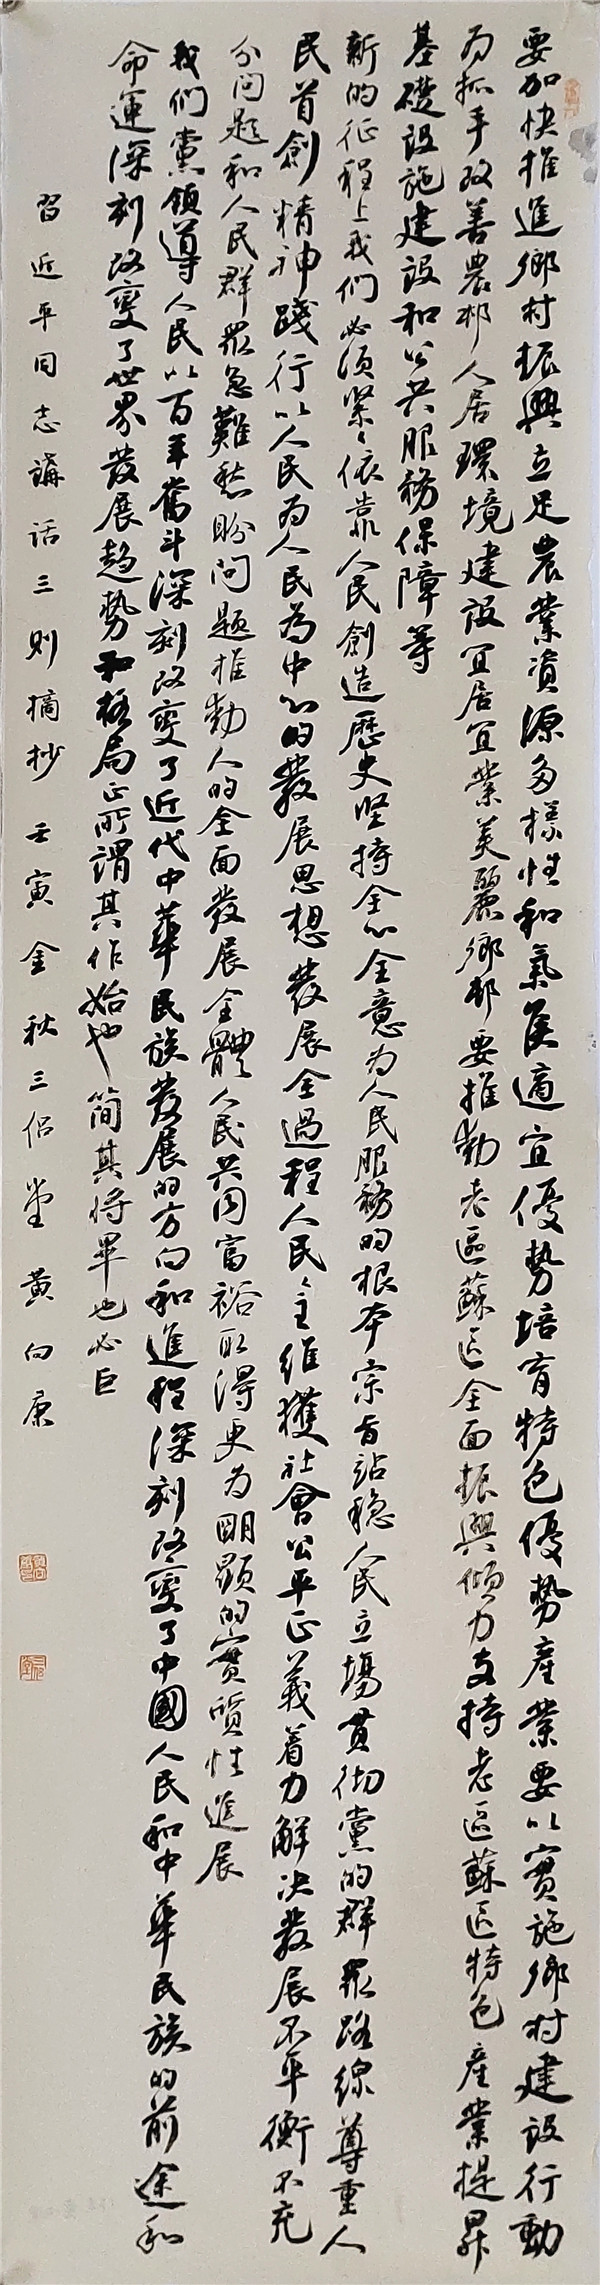 要加快推進鄉村振興立足農業資源多樣性和氣候適宜優勢培育特色優勢產業要以實施鄉村建設行動
為抓手改善農村人居環境建設宜居宜業美麗鄉邨要推動老區蘇區全面振興傾力支持老區蘇區特色產業提昇
基礎設施建設和公共服務保障等
新的征程上我们必须緊緊依靠人民創造歷史坚持全心全意为人民服務的根本宗旨站稳人民立場貫彻黨的群眾路線尊重人
民首創精神踐行以人民为人民為中心的發展思想發展全過程人民主維獲社會公平正義着力解决發展不平衡不充
分问题和人民群眾急難愁盼问题推動人的全面發展全體人民共同富裕取得更为明顯的實質性進展
我们黨領導人民以百年奮斗深刻改變了近代中華民族發展的方向和進程深刻改變了中國人民和中華民族的前途和
命運深刻改變了世界發展趨勢和格局正所謂其作始也简其将畢也必巨
習近平同志講话三则摘抄 壬寅金秋三侣堂 黄向康